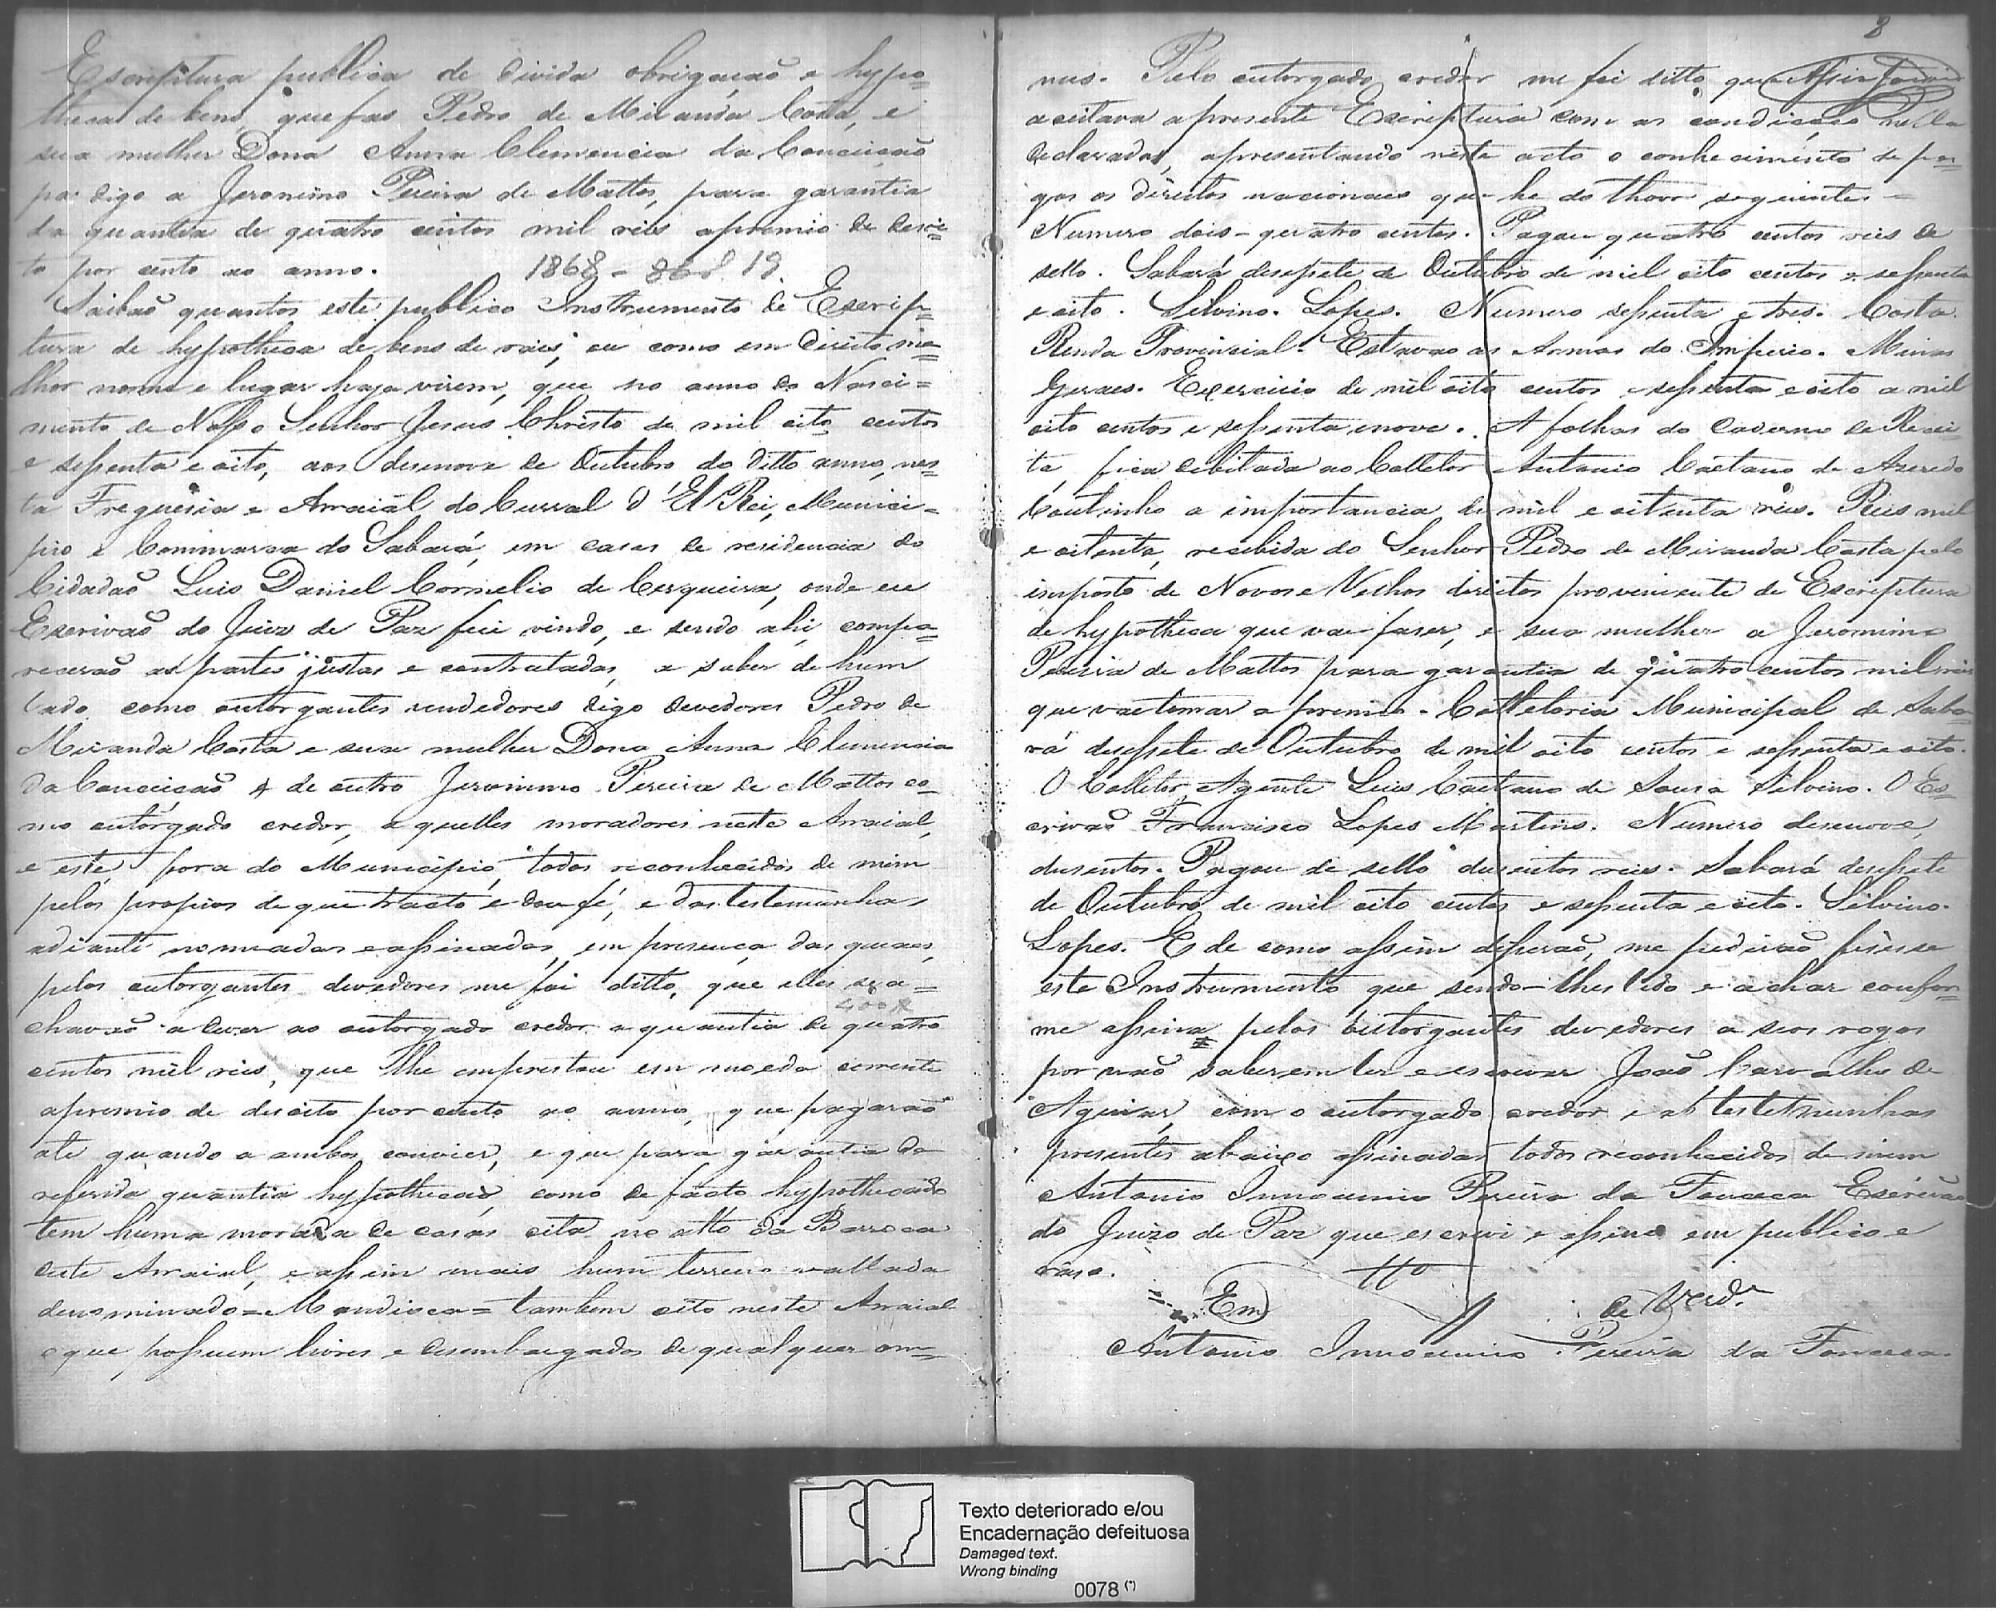 Escriptura publica de divida obrigação e hypo=
theca de bens, que fas Pedro de Miranda Costa, e
sua mulher Dona Anna Clemencia da Conceição
digo a Jeronimo Pereira de Mattos, para garantia
da quantia de quatro centos mil reis a premio de desoi=
to por cento ao anno. 1868 - 19.
Saibão quantos este publico Instrumento de Escrip=
tura de hypotheca de bens de rais, ou como em direito me=
lhor nome e lugar haja virem, que no anno do Nasci=
mento de Nosso Senhor Jesus Christo de mil oito centos
e sessenta e oito, aos desenove de Outubro do ditto anno, nes=
ta Freguesia e Arraial do Curral d'El Rei, Munici=
pio e Commarca do Sabará, em casas de residencia do
Cidadão Luis Daniel Cornelio de Cerqueira, onde eu
Escrivão do Juiz de Paz fui vindo, e sendo ahi compa=
recerão as partes justas e contratadas, a saber de hum
lado como outorgantes vendedores digo devedores Pedro de
Miranda Costa e sua mulher Dona Anna Clemencia
da Conceição & de outro Jeronimo Pereira de Mattos co=
mo outorgado credor, aquelles moradores neste Arraial,
e este fora do Municipio, todos reconhecidos de mim
pelos proprios de que tracto e dou fé, e das testemunhas
adiante nomeadas e assinadas, em presença das quaes,
pelos outorgantes devedores me foi ditto, que elles se a=
400$
chavão a dever ao outorgado credor a quantia de quatro
centos mil reis, que lhe emprestou em moeda corrente
a premio de desoito por cento ao anno, que pagarão
até quando a ambos convier, e que para garantia da
referida quantia hypothecão, como de facto hypothecado
tem huma morada de casas cita no alto da Barroca
deste Arraial, e assim mais hum terreno vallado
denominado = Mandioca = tambem cito neste Arraial
e que possuem livres e desembargados de qualquer om=
8
nus. Pelo outorgado credor me foi ditto que
aceitava a presente Escriptura com as condições nella
declaradas, apresentando neste acto o conhecimento de pa=
gos os direitos nacionaes que he do theor seguinte =
Numero dois - quatro centos. Pagou quatro centos reis de
sello. Sabará desessete de Outubro de mil oito centos e sessenta
e oito. Silvino. Lopes. Numero sessenta e tres. Costa.
Renda Provincial. Estavão as Armas do Imperio. Minas
Geraes. Exercicio de mil oito centos e sessenta e oito a mil
oito centos e sessenta e nove. A folhas do caderno de Recei=
ta, fica debitada ao Colletor Antonio Caetano de Azeredo
Coutinho a importancia de mil e oitenta reis. Reis mil
e oitenta, recebida do Senhor Pedro de Miranda Costa pelo
imposto de Novos e Velhos direitos proveniente de Escriptura
de hypotheca que vai faser, e sua mulher a Jeronimo
Pereira de Mattos para garantia de quatro centos mil reis
que vae tomar a premio - Colletoria Municipal de Saba=
rá desessete de Outubro de mil oito centos e sessenta e oito.
O Colletor, Agente Luis Caetano de Sousa Silvino. O Es=
crivão Francisco Lopes Martins. Numero desenove,
dusentos. Pagou de sello dusentos reis. Sabará desessete
de Outubro de mil oito centos e sessenta e oito. Silvino.
Lopes. E de como assim disserão, me pedirão fisesse
este Instrumento que sendo-lhes lido e achar confor=
me assina pelos outorgantes devedores a seos rogos
por não saberem ler e escrever João Carvalho de
Aguiar, com o outorgado credor e as testemunhas
presentes abaixo assinadas todos reconhecidos de mim
Antonio Innocencio Pereira da Fonceca Escrivão
do Juizo de Paz que escrevi e assino em publico e
raso.
Em de Verd.e
Antonio Innocencio Pereira da Fonceca
Texto deteriorado e/ou
Encadernação defeituosa
Damaged text.
Wrong binding
0078 (*)